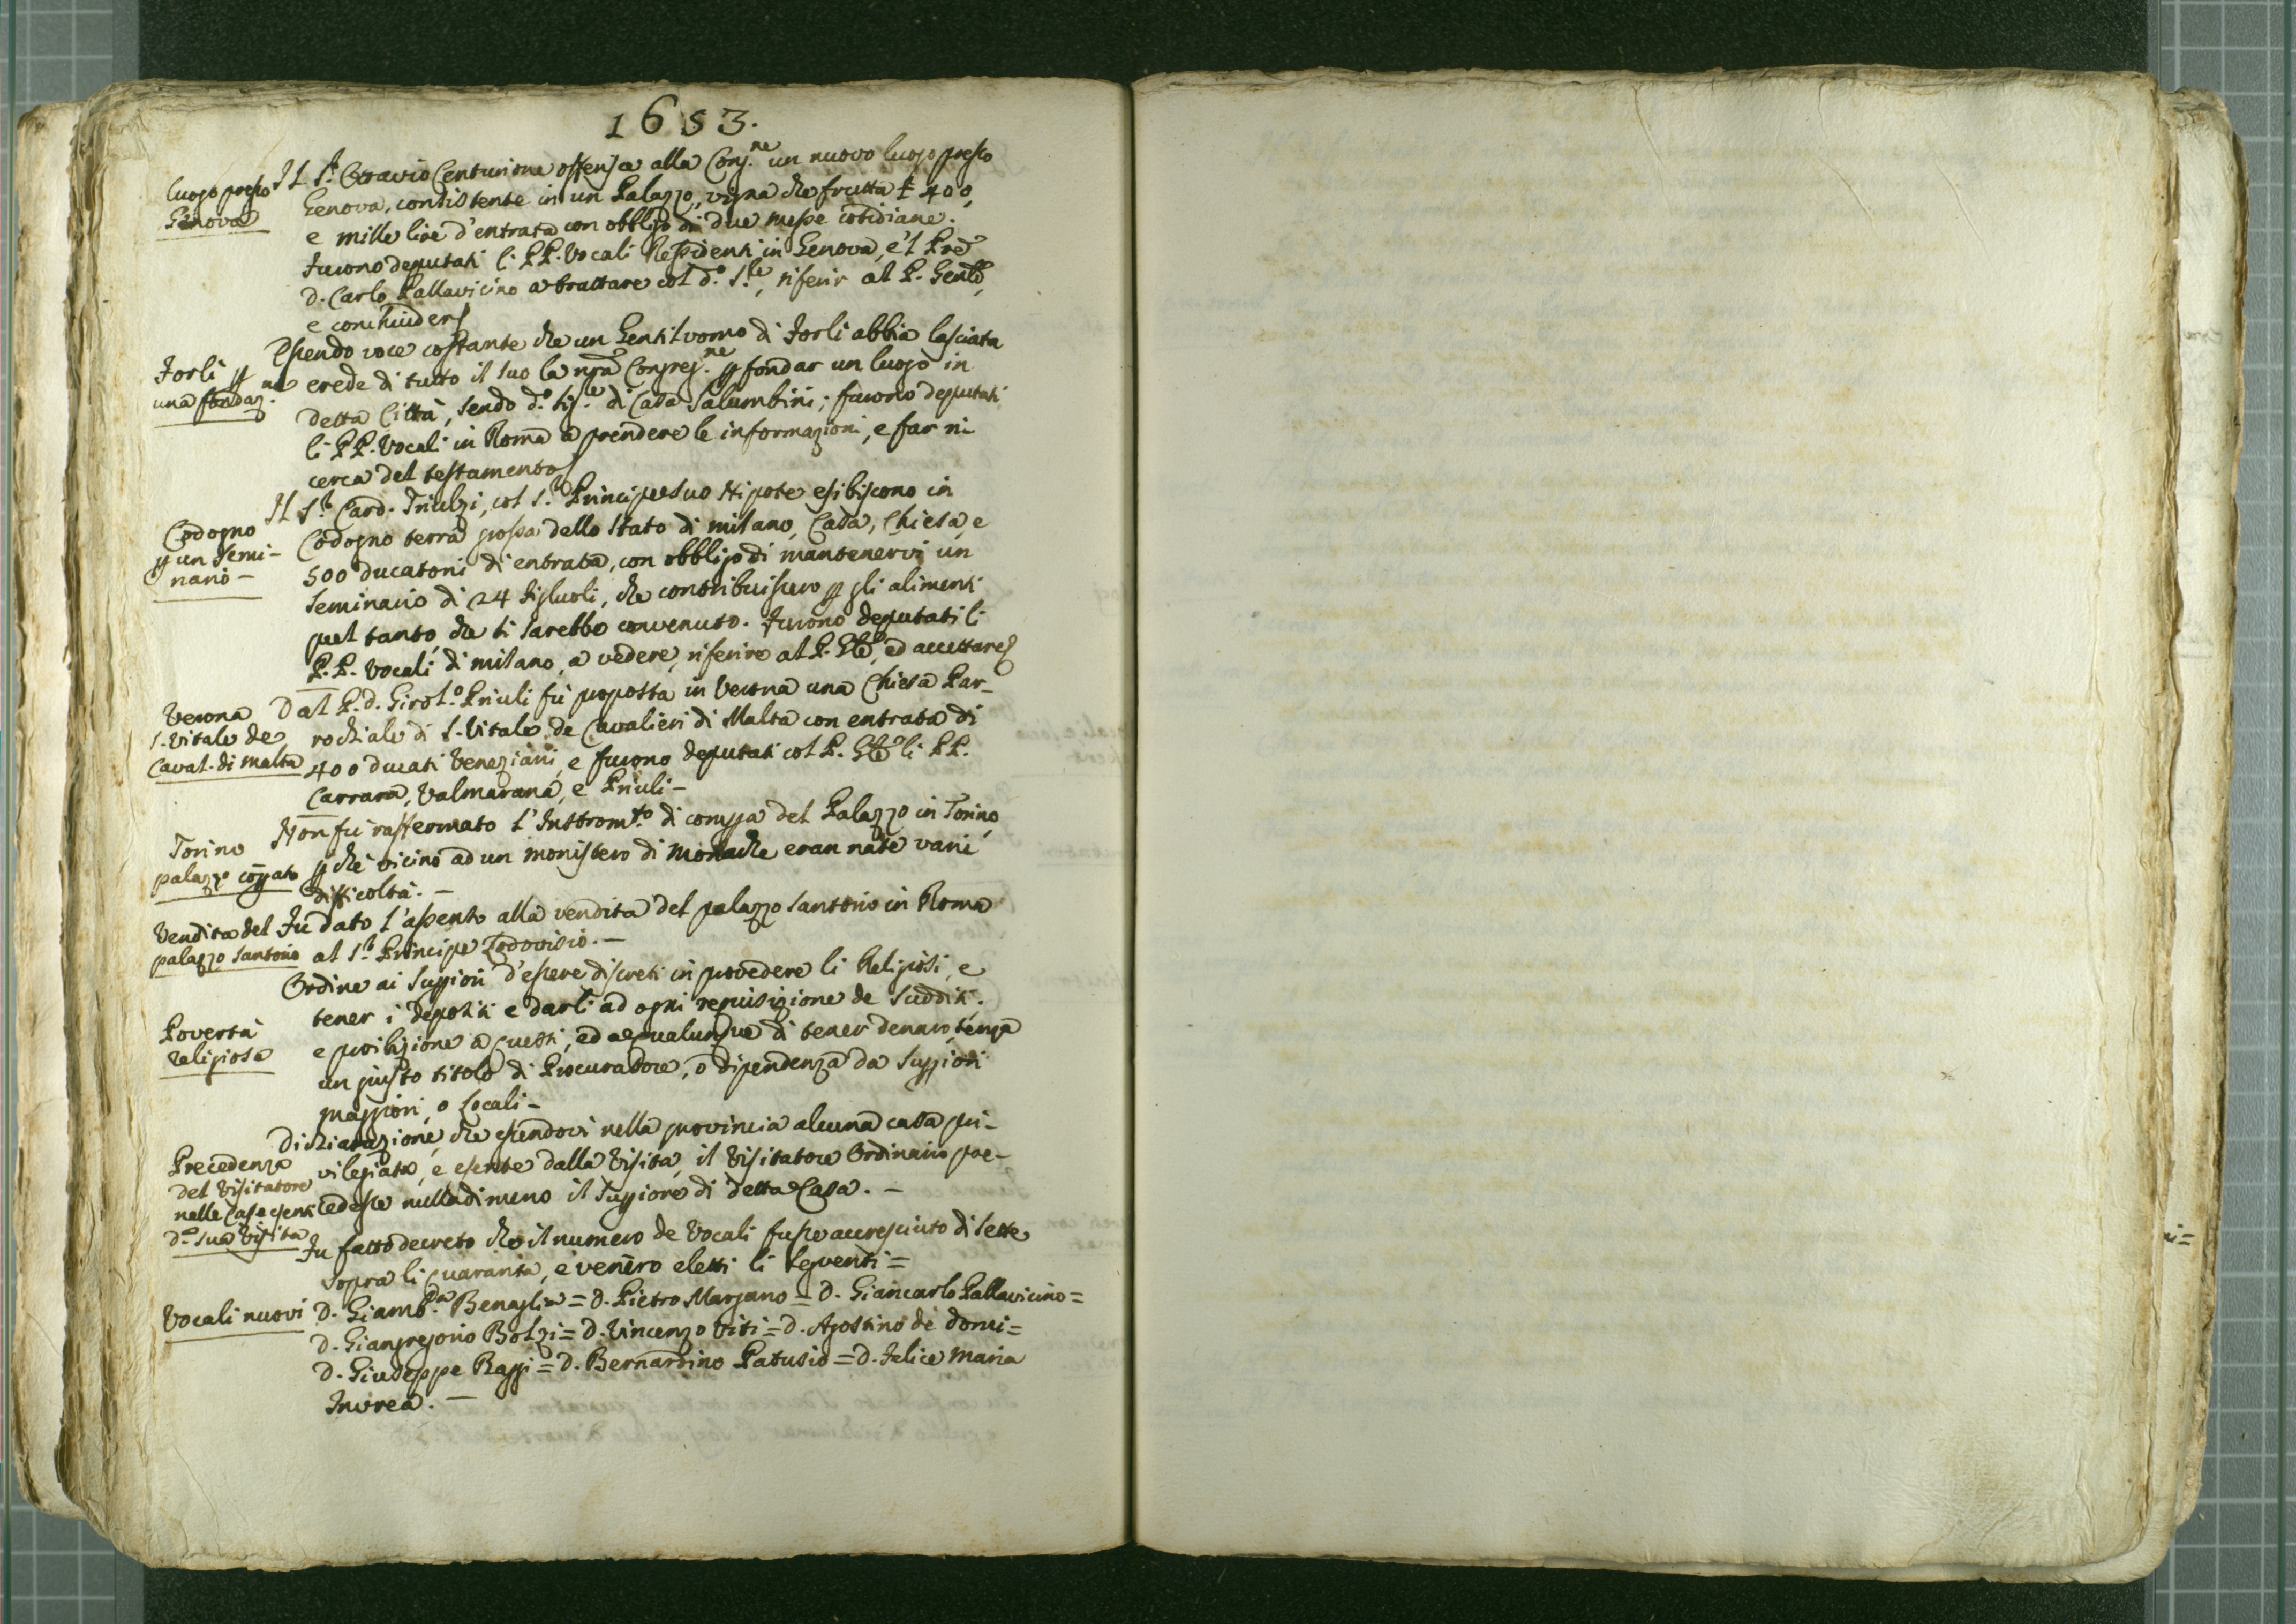 1653.
luogo presso
Genova
Il S.r Ottavio Centurione offerisce alla Cong.ne un nuovo luogo presso
Genova, consistente in un Palazzo, vigna che frutta £ 400,
e mille lire d'entrata con obbligo di due messe cotidiane.
Furono deputati li PP. Vocali Residenti in Genova, e'l Pre
D. Carlo Pallavicino a trattare col d.o S.re, riferir al P. Gentle,
e conchiudere
Forlì per
una fondaz.
Essendo voce costante che un Gentiluomo di Forlì abbia lasciata
erede di tutto il suo la nra Congreg.ne per fondar un luogo in
detta Città, sendo d.o Sig.re di Casa Salumbini; furono deputati
li PP. Vocali in Roma a prendere le informazioni, e far ri-
cerca del testamento
Codogno
per un Semi-
nario -
Il S.r Card. Triulzi, col S.r Principe suo Nipote esibiscono in
Codogno terra grossa dello Stato di Milano, Casa, Chiesa, e
500 ducatoni di entrata, con obbligo di mantenervi un
Seminario di 24 figluoli, che contribuissero per gli alimenti
quel tanto, che si sarebbe convenuto. Furono deputati li
P.P. Vocali di Milano, a vedere, riferire al P. Gle, ed accettare
Verona
S. Vitale de
Caval. di Malta
Dal P. D. Girol.o Priuli fù proposta in Verona una Chiesa Par-
rochiale di S. Vitale de Cavalieri di Malta con entrata di
400 ducati Veneziani, e furono deputati col P. Gle li PP.
Carrara, Valmarana, e Priuli -
Torino
palazzo comprato
Non fù raffermato l'Instrom.to di compra del Palazzo in Torino,
perchè vicino ad un monistero di Monache eran nate varie
difficoltà. -
Vendita del
palazzo Santorio
Fu dato l'assento alla vendita del palazzo Santorio in Roma
al S.r Principe Lodovisio. -
Povertà
religiosa
Ordine ai Superiori d'essere discreti in provedere li Religiosi, e
tener i depositi e darli ad ogni requisizione de Sudditi.
e proibizione a questi, ed a qualunque di tener denaro, senza
un giusto titolo di Procuradore, o dipendenza da Superiori
maggiori, o Locali -
Precedenza
del Visitatore
nelle Case esenti
d.a sua Visita
Dichiarazione, che essendovi nella provincia alcuna casa pri-
vilegiata, e esente dalla Visita, il Visitatore Ordinario pre-
cedesse nulladimeno il Superiore di detta Casa. -
Fu fatto decreto che il numero de Vocali fusse accresciuto di sette
sopra li quaranta, e venero eletti li seguenti =
Vocali nuovi
D. Giamb.a Benaglia = D. Pietro Margano = D. Giancarlo Pallavicino =
D. Giangregorio Bolzi = D. Vincenzo Viti = D. Agostino de domi =
D. Giuseppe Raggi = D. Bernardino Patusio = D. Felice Maria
Invrea. -